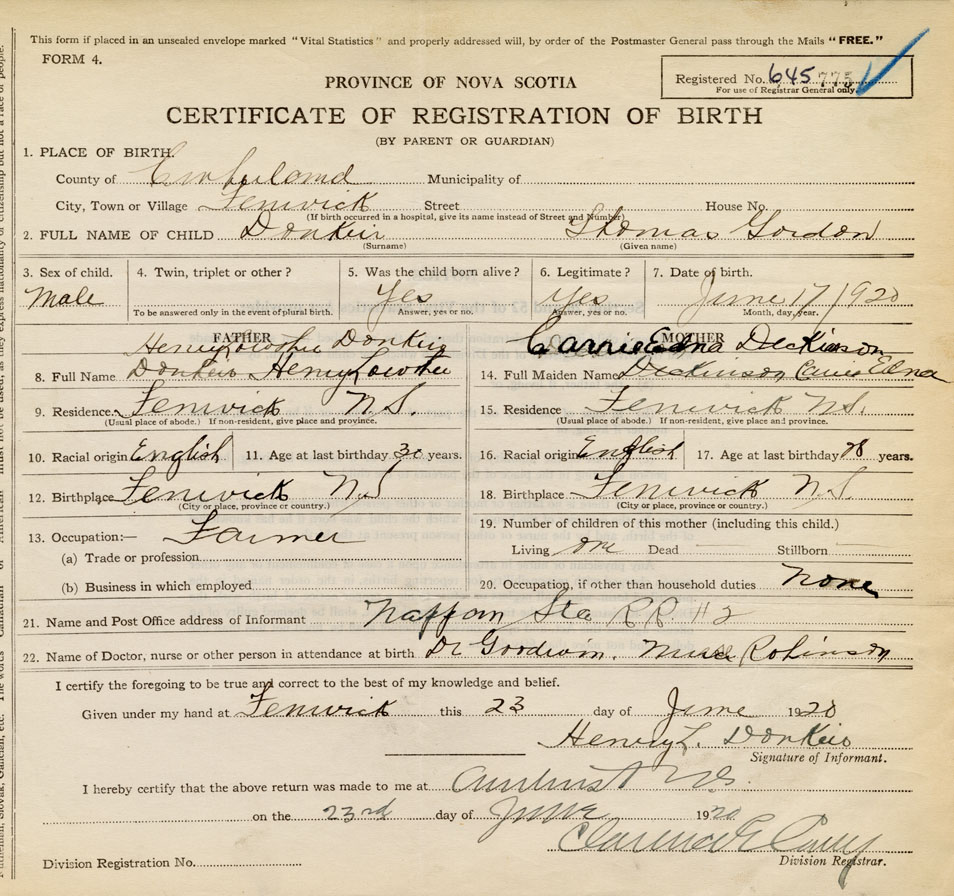 This form if placed in an unsealed envelope marked "Vital Statistics" and properly addressed will, by order of the Postmaster General pass through the Mails "FREE."
FORM 4.
Registered No. 645 775
For use of Registrar General only.
PROVINCE OF NOVA SCOTIA
CERTIFICATE OF REGISTRATION OF BIRTH
(BY PARENT OR GUARDIAN)
1. PLACE OF BIRTH.
County of Cumberland Municipality of
City, Town or Village Fenwick Street House No.
(If birth occurred in a hospital, give its name instead of Street and Number)
2. FULL NAME OF CHILD Donkin Thomas Gordon
(Surname) (Given name)
3. Sex of child. 4. Twin, triplet or other? 5. Was the child born alive? 6. Legitimate? 7. Date of birth.
Male Yes Yes June 17/1920
To be answered only in the event of plural birth. Answer, yes or no. Answer, yes or no. Month, day, year.
FATHER MOTHER
Henry Lowther Donkin Carrie Edna Dickinson
8. Full Name Donkin Henry Lowther 14. Full Maiden Name Dickinson Carrie Edna
9. Residence. Fenwick N.S. 15. Residence Fenwick N.S.
(Usual place of abode.) If non-resident, give place and province. (Usual place of abode.) If non-resident, give place and province.
10. Racial origin English 11. Age at last birthday years. 16. Racial origin English 17. Age at last birthday years.
12. Birthplace Fenwick N.S 18. Birthplace Fenwick N.S.
(City or place, province or country.) (City or place, province or country.)
13. Occupation:— Farmer 19. Number of children of this mother (including this child.)
(a) Trade or profession Living one Dead Stillborn
(b) Business in which employed 20. Occupation, if other than household duties None
21. Name and Post Office address of Informant Nappan Sta R.R. #2
22. Name of Doctor, nurse or other person in attendance at birth Dr Goodwin. Robinson
I certify the foregoing to be true and correct to the best of my knowledge and belief.
Given under my hand at Fenwick this 23 day of June 1920
Henry L. Donkin
Signature of Informant.
I hereby certify that the above return was made to me at Amherst N.S.
on the 23rd day of June 1920
Clarence E
Division Registrar.
Division Registration No.